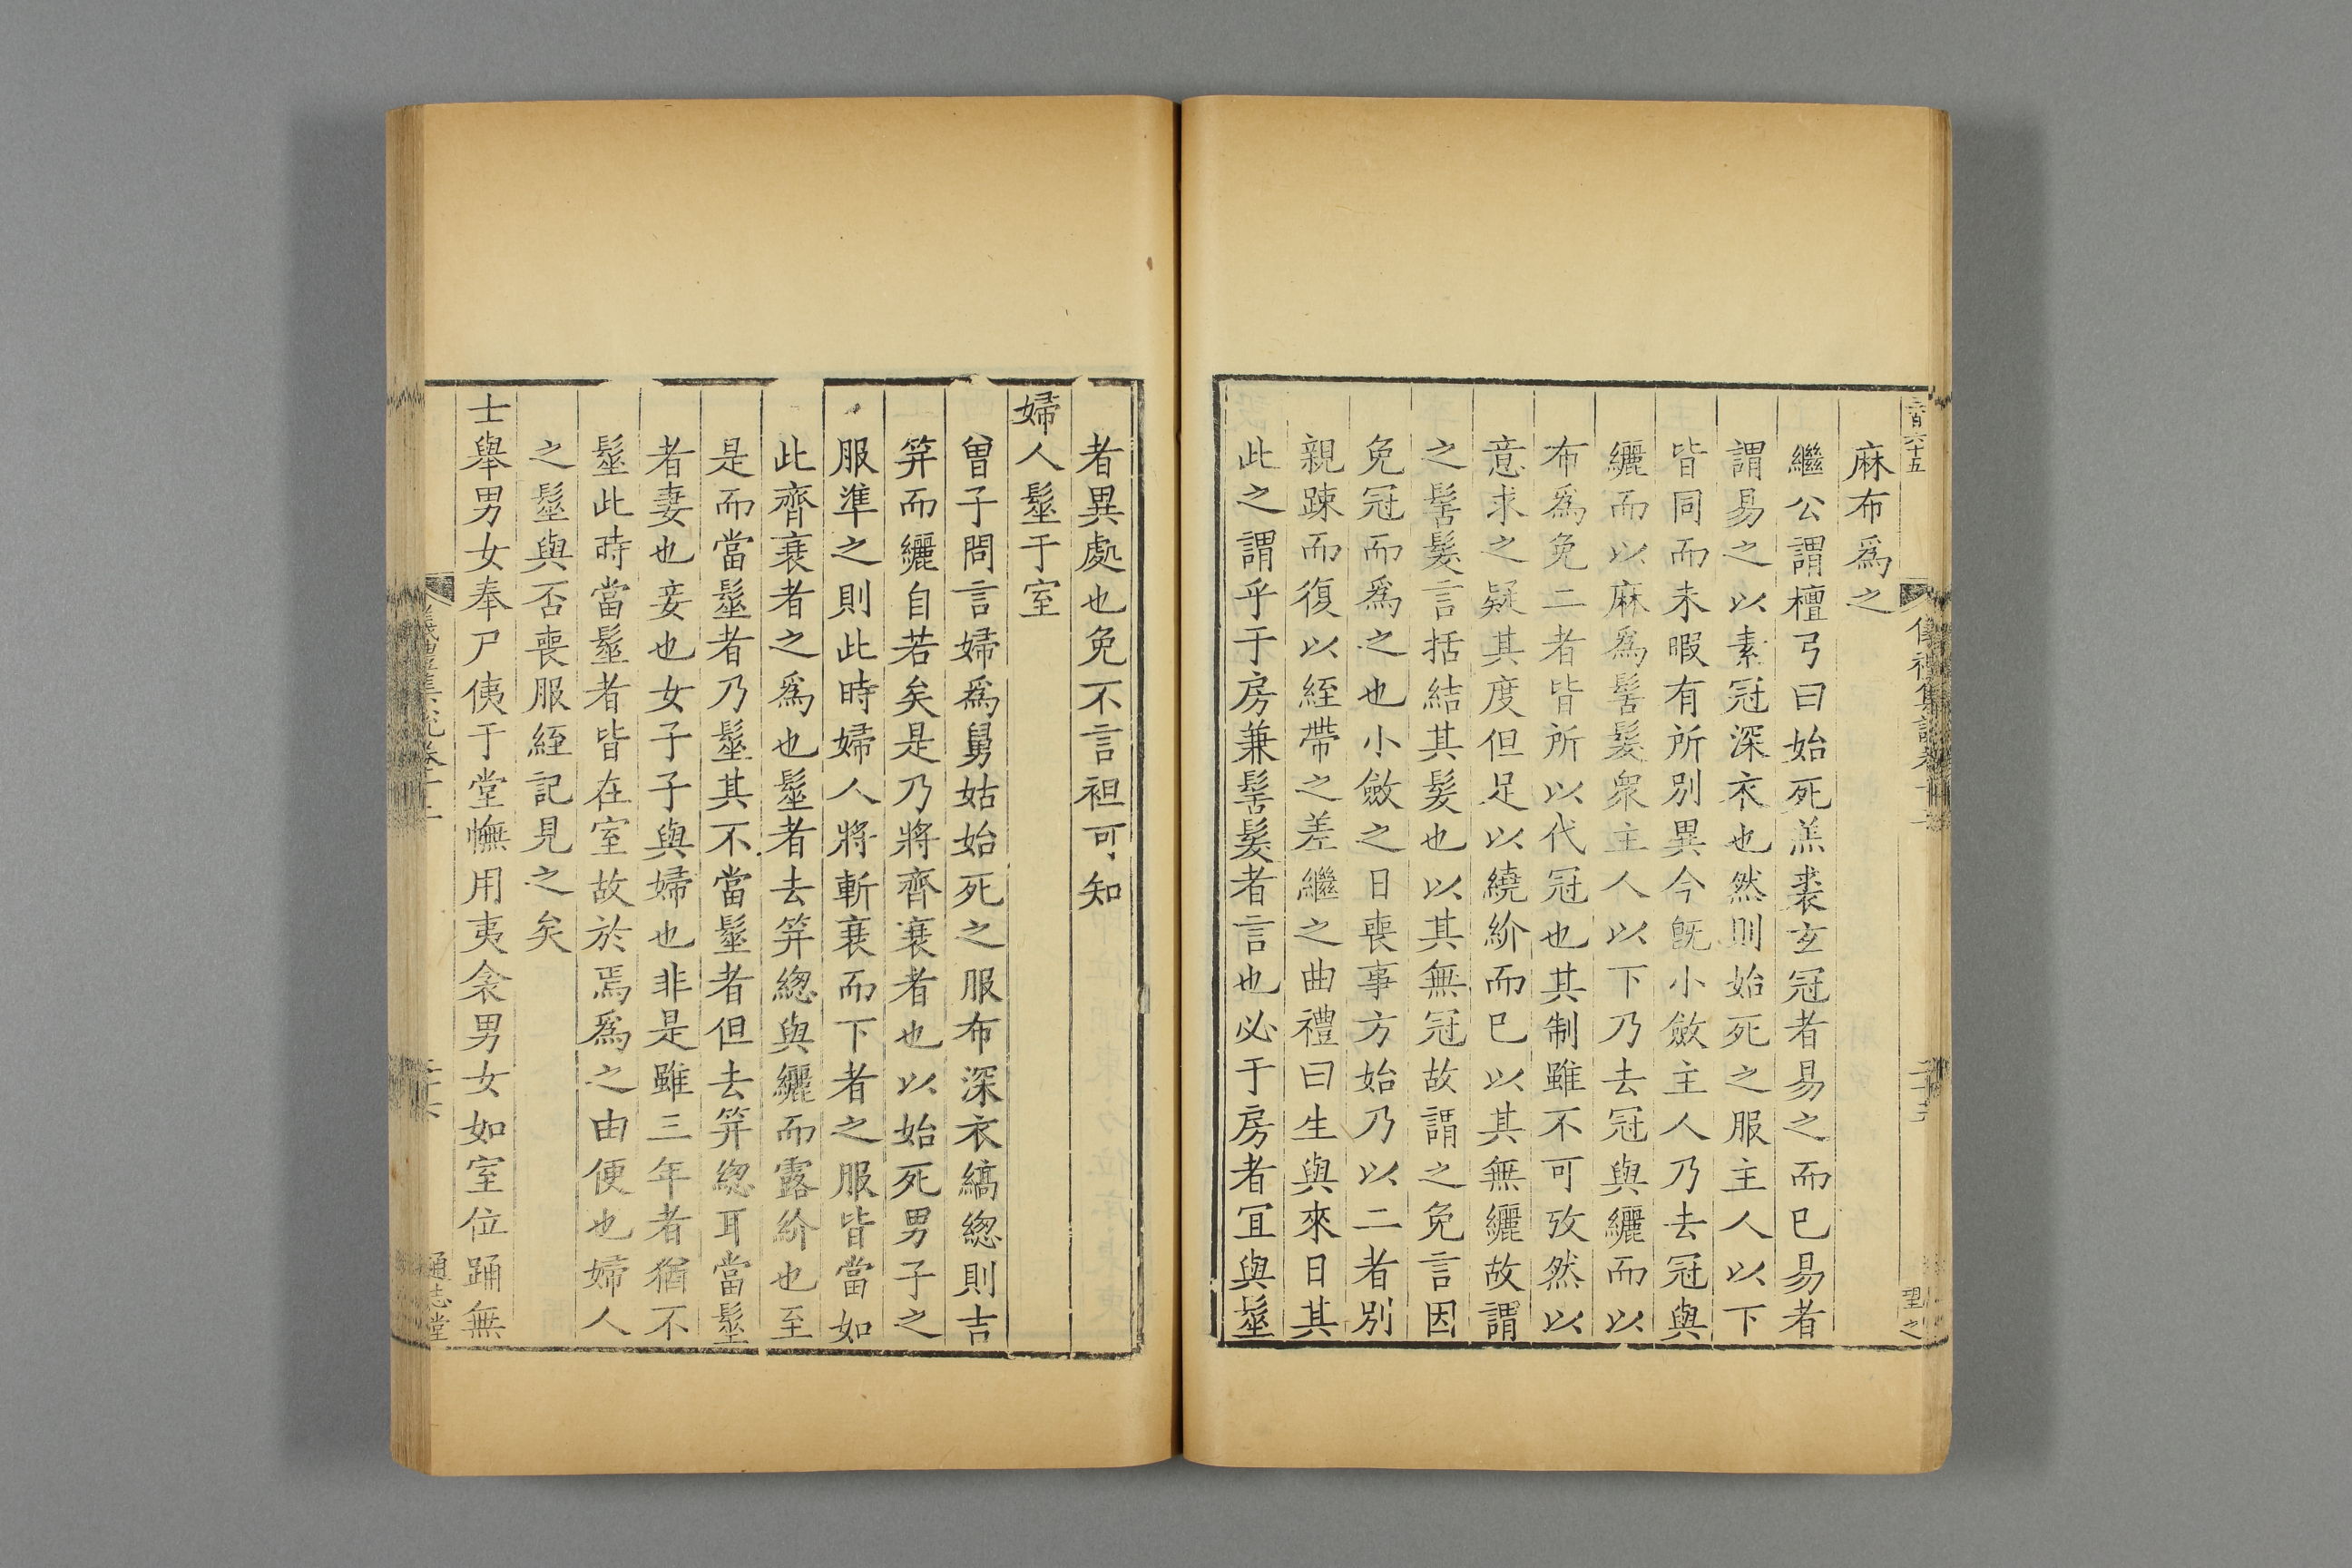 麻布爲之
繼公謂檀弓曰始死羔裘玄冠者易之而已易者
謂易之以素冠深衣也然則始死之服主人以下
皆同而未暇有所別異今旣小斂主人乃去冠與
纚而以麻爲髻髮衆主人以下乃去冠與纚而以
布爲免二者皆所以代冠也其制雖不可攷然以
意求之疑其度但足以繞紒而已以其無纚故謂
之髻髮言括結其髮也以其無冠故謂之免言因
免冠而爲之也小斂之日喪事方始乃以二者別
親踈而復以絰帶之差繼之曲禮曰生與來日其
此之謂乎于房兼髻髮者言也必于房者冝與髽
者異處也免不言袒可知
婦人髽于室
曾子問言婦爲舅姑始死之服布深衣縞緫則吉
笄而纚自若矣是乃將齊衰者也以始死男子之
服準之則此時婦人將斬衰而下者之服皆當如
此齊衰者之爲也髽者去笄緫與纚而露紒也至
是而當髽者乃髽其不當髽者但去笄緫耳當髽
者妻也妾也女子子與婦也非是雖三年者猶不
髽此時當髽者皆在室故於焉爲之由便也婦人
之髽與否喪服絰記見之矣
士舉男女奉尸侇于堂幠用夷衾男女如室位踊無
二百六十五
儀禮集說卷十二
望之
通志堂